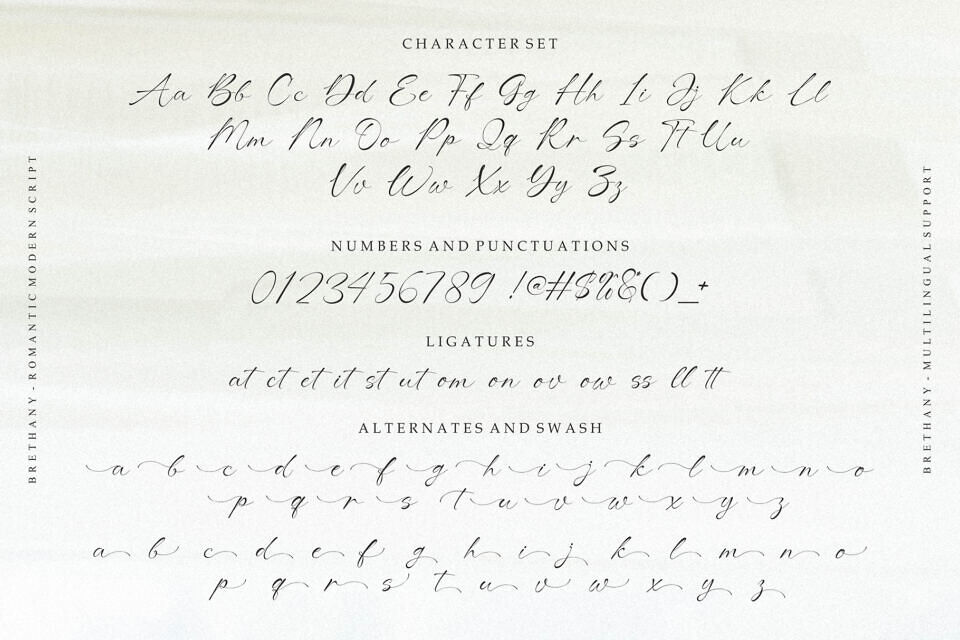 CHARACTER SET
Aa Bb Cc Dd Ee Ff Gg Hh Ii Jj Kk Ll
Mm Nn Oo Pp Qq Rr Ss Tt Uu
Vv Ww Xx Yy Zz
NUMBERS AND PUNCTUATIONS
0123456789 !@#$%&( )_+
LIGATURES
at ct et it st ut om on ov ow ss ll tt
ALTERNATES AND SWASH
a b c d e f g h i j k l m n o
p q r s t u v w x y z
a b c d e f g h i j k l m n o
p q r s t u v w x y z
BRETHANY - ROMANTIC MODERN SCRIPT
BRETHANY - MULTILINGUAL SUPPORT